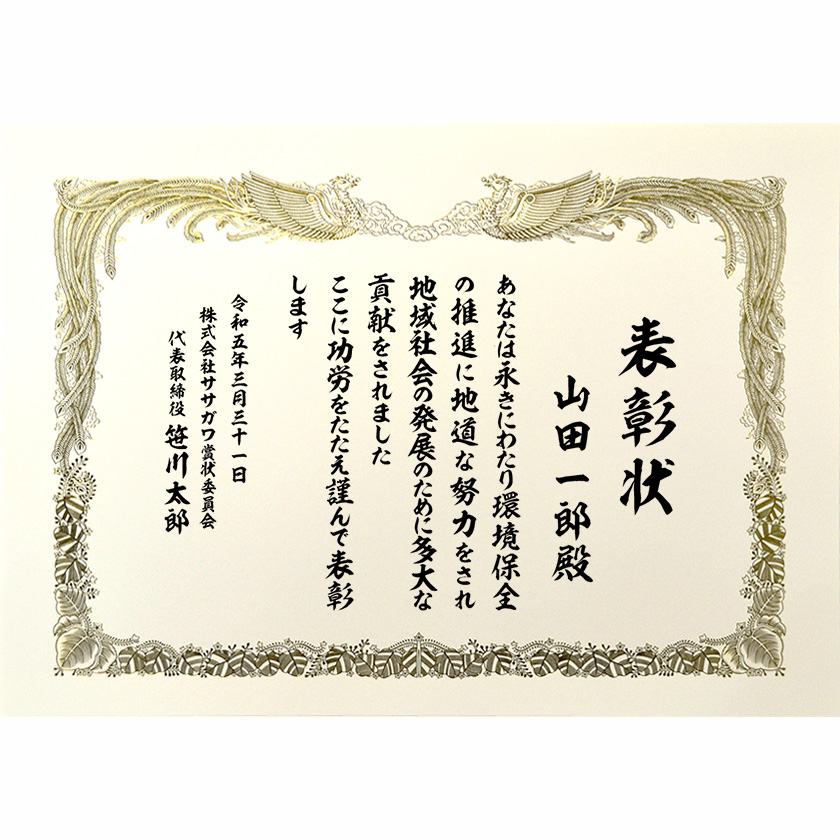 表彰状
山田一郎殿
あなたは永きにわたり環境保全
の推進に地道な努力をされ
地域社会の発展のために多大な
貢献をされました
ここに功労をたたえ謹んで表彰
します
令和五年三月三十一日
株式会社ササガワ賞状委員会
代表取締役 笹川太郎